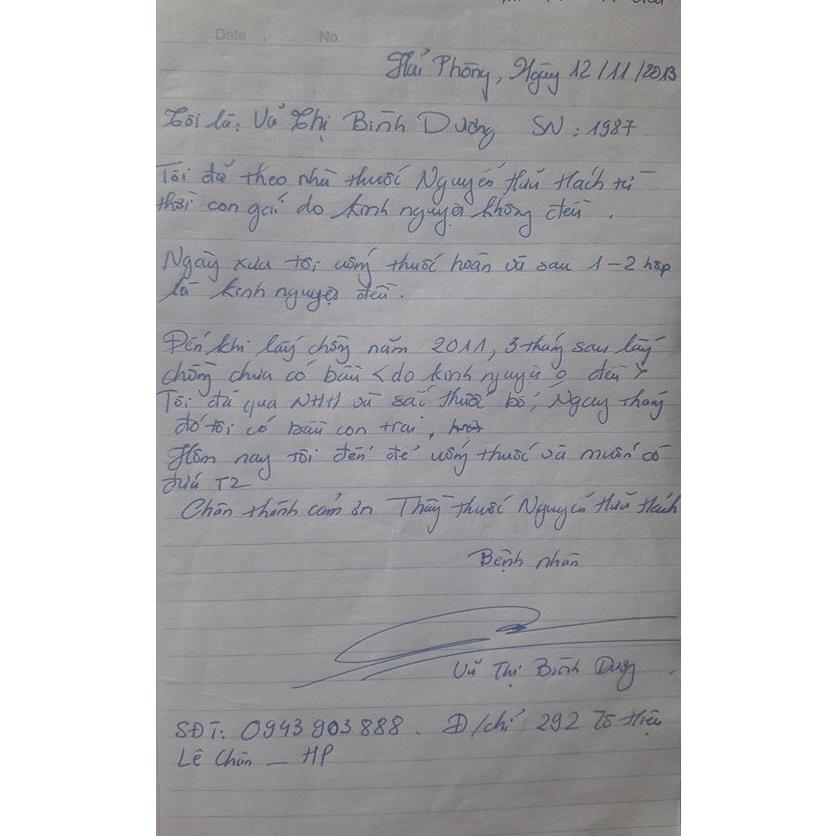 Date No.
Hải Phòng, Ngày 12/11/2013
Tôi là: Vũ Thị Bình Dương SN: 1987
Tôi đã theo nhà thuốc Nguyễn Hữu Hách từ
thời con gái do kinh nguyệt không đều.
Ngày xưa tôi uống thuốc hoàn và sau 1-2 hộp
là kinh nguyệt đều.
Đến khi lấy chồng năm 2011, 3 tháng sau lấy
chồng chưa có bầu < do kinh nguyệt o đều >
Tôi đã qua NHH và sắc thuốc bổ, Ngay tháng
đó tôi có bầu con trai,
Hôm nay tôi đến để uống thuốc và muốn có
đứa T2
Chân thành cảm ơn Thầy thuốc Nguyễn Hữu Hách
Bệnh nhân
Vũ Thị Bình Dương
SĐT: 0943 903.888. Đ/chỉ 292 Tô Hiệu
Lê Chân - HP